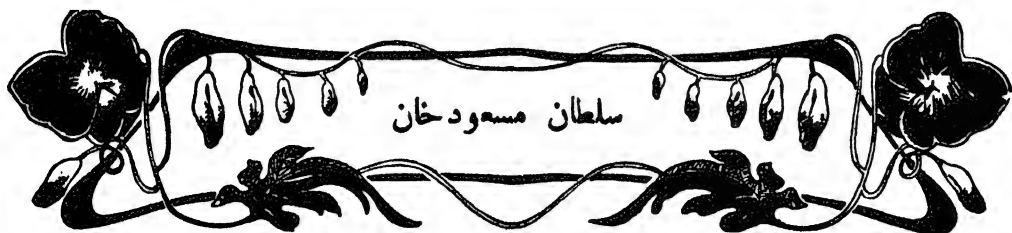 سلطان مسعود خان